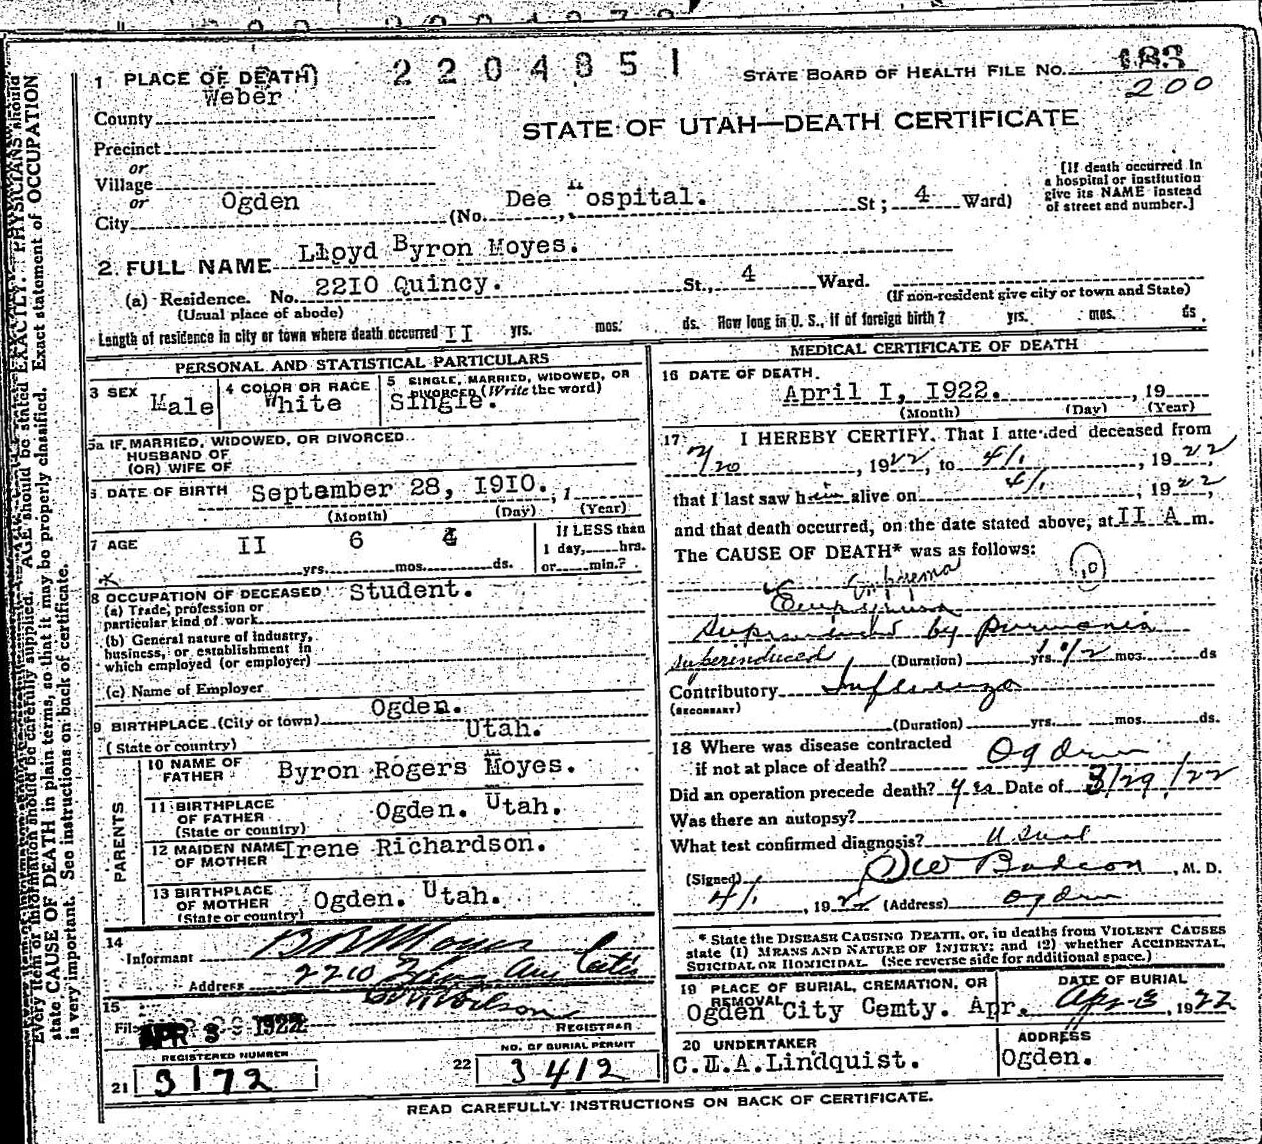 2204851
STATE BOARD OF HEALTH FILE NO. 183
200
1 PLACE OF DEATH
Weber
County
STATE OF UTAH—DEATH CERTIFICATE
Precinct
or
Village
or
City Ogden (No. Dee Hospital. St; 4 Ward)
[If death occurred in
a hospital or institution
give its NAME instead
of street and number.]
2. FULL NAME Lloyd Byron Moyes.
(a) Residence. No. 22I0 Quincy. St., 4 Ward.
(Usual place of abode)
(If non-resident give city or town and State)
Length of residence in city or town where death occurred II yrs. mos. ds. How long in U. S., if of foreign birth? yrs. mos. ds.
PERSONAL AND STATISTICAL PARTICULARS
3 SEX Male
4 COLOR OR RACE White
5 SINGLE, MARRIED, WIDOWED, OR
DIVORCED (Write the word)
Single.
5a IF MARRIED, WIDOWED, OR DIVORCED
HUSBAND OF
(OR) WIFE OF
6 DATE OF BIRTH September 28, I9I0. , 1
(Month) (Day) (Year)
7 AGE II yrs. 6 mos. ds.
If LESS than
1 day, hrs.
or min.?
8 OCCUPATION OF DECEASED Student.
(a) Trade, profession or
particular kind of work
(b) General nature of industry,
business, or establishment in
which employed (or employer)
(c) Name of Employer
9 BIRTHPLACE (City or town) Ogden.
(State or country) Utah.
PARENTS
10 NAME OF
FATHER Byron Rogers Moyes.
11 BIRTHPLACE
OF FATHER Ogden. Utah.
(State or country)
12 MAIDEN NAME
OF MOTHER Irene Richardson.
13 BIRTHPLACE
OF MOTHER Ogden. Utah.
(State or country)
14
Informant B R Moyes
Address 2210
15
Filed APR 3 1922 REGISTRAR
REGISTERED NUMBER
21 3172
NO. OF BURIAL PERMIT
22 3412
MEDICAL CERTIFICATE OF DEATH
16 DATE OF DEATH.
April I, I922. , 19
(Month) (Day) (Year)
17 I HEREBY CERTIFY. That I attended deceased from
, 1922, to 4/1 , 1922,
that I last saw him alive on 4/1 , 1922,
and that death occurred, on the date stated above, at II A m.
The CAUSE OF DEATH* was as follows:
Empyema 10
Empyema
by pneumonia
superinduced (Duration) yrs. 1/2 mos. ds
Contributory Influenza
(SECONDARY)
(Duration) yrs. mos. ds.
18 Where was disease contracted
if not at place of death? Ogden
Did an operation precede death? yes Date of 3/29/22
Was there an autopsy?
What test confirmed diagnosis? usual
(Signed) , M. D.
4/1 , 1922 (Address) Ogden
* State the DISEASE CAUSING DEATH, or, in deaths from VIOLENT CAUSES
state (1) MEANS AND NATURE OF INJURY; and (2) whether ACCIDENTAL,
SUICIDAL OR HOMICIDAL. (See reverse side for additional space.)
19 PLACE OF BURIAL, CREMATION, OR
REMOVAL
Ogden City Cemty. Apr.
DATE OF BURIAL
Apr 3, 1922
20 UNDERTAKER
Lindquist.
ADDRESS
Ogden.
READ CAREFULLY INSTRUCTIONS ON BACK OF CERTIFICATE.
Every item of information should be carefully supplied. AGE should be stated EXACTLY. PHYSICIANS should
state CAUSE OF DEATH in plain terms, so that it may be properly classified. Exact statement of OCCUPATION
is very important. See instructions on back of certificate.